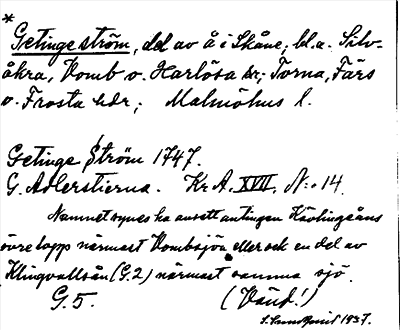 *
Getingeström, del av å i Skåne; bl.a. Silv-
åkra, Vomb o. Harlösa sr; Torna, Färs
o. Frosta hdr; Malmöhus l.
Getinge Ström 1747.
G. Adlerstierna. Kr A. XVII, N:o 14.
Namnet synes ha avsett antingen Kävlingeåns
övre lopp närmast Vombsjön eller ock en del av
Klingvallsån (G.2) närmast samma sjö.
G.5. (Vänd!)
S. Lundquist 1937.